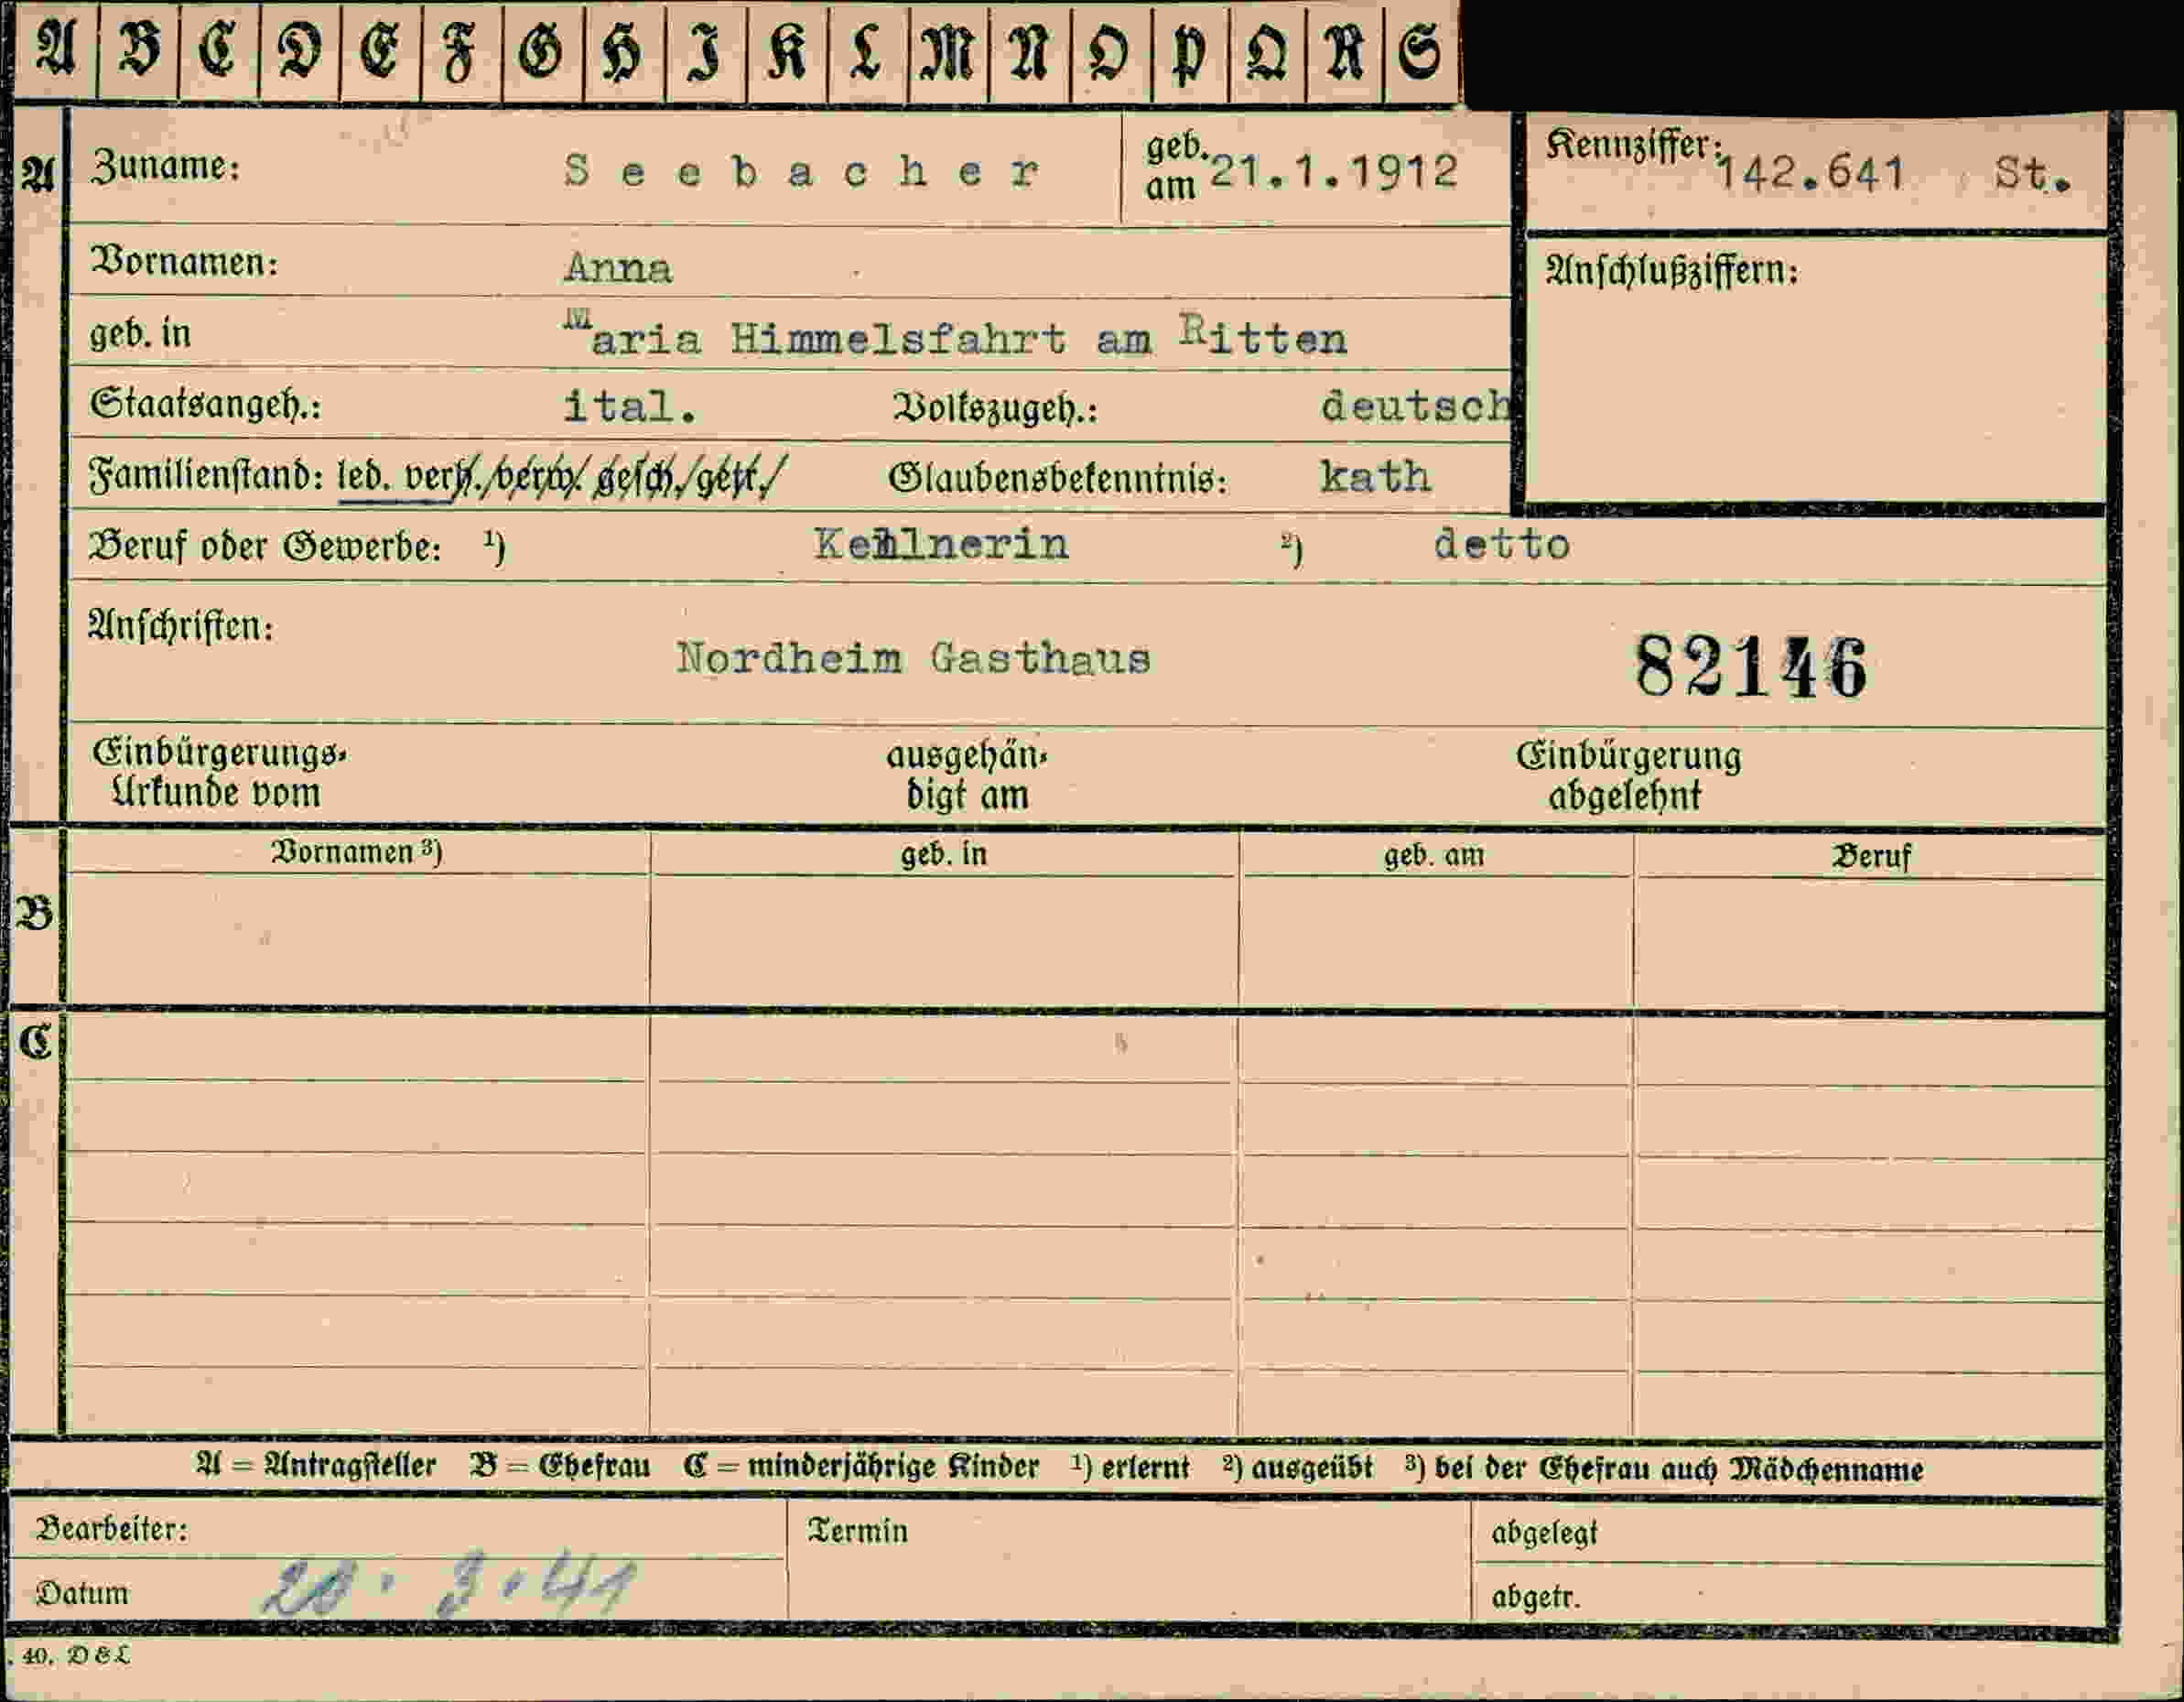 A B C D E F G H I K L M N O P Q R S
A Zuname: Seebacher geb. am 21.1.1912 Kennziffer: 142.641 St.
Vornamen: Anna Anschlußziffern:
geb. in Maria Himmelsfahrt am Ritten
Staatsangeh.: ital. Volkszugeh.: deutsch
Familienstand: led. verh./verw./gesch./getr./ Glaubensbekenntnis: kath
Beruf oder Gewerbe: ¹) Kellnerin ²) detto
Anschriften:
Nordheim Gasthaus 82146
Einbürgerungs- ausgehän- Einbürgerung
Urkunde vom digt am abgelehnt
Vornamen ³) geb. in geb. am Beruf
B
C
A = Antragsteller B = Ehefrau C = minderjährige Kinder ¹) erlernt ²) ausgeübt ³) bei der Ehefrau auch Mädchenname
Bearbeiter: Termin abgelegt
Datum 3.41 abgetr.
. 40. D & L